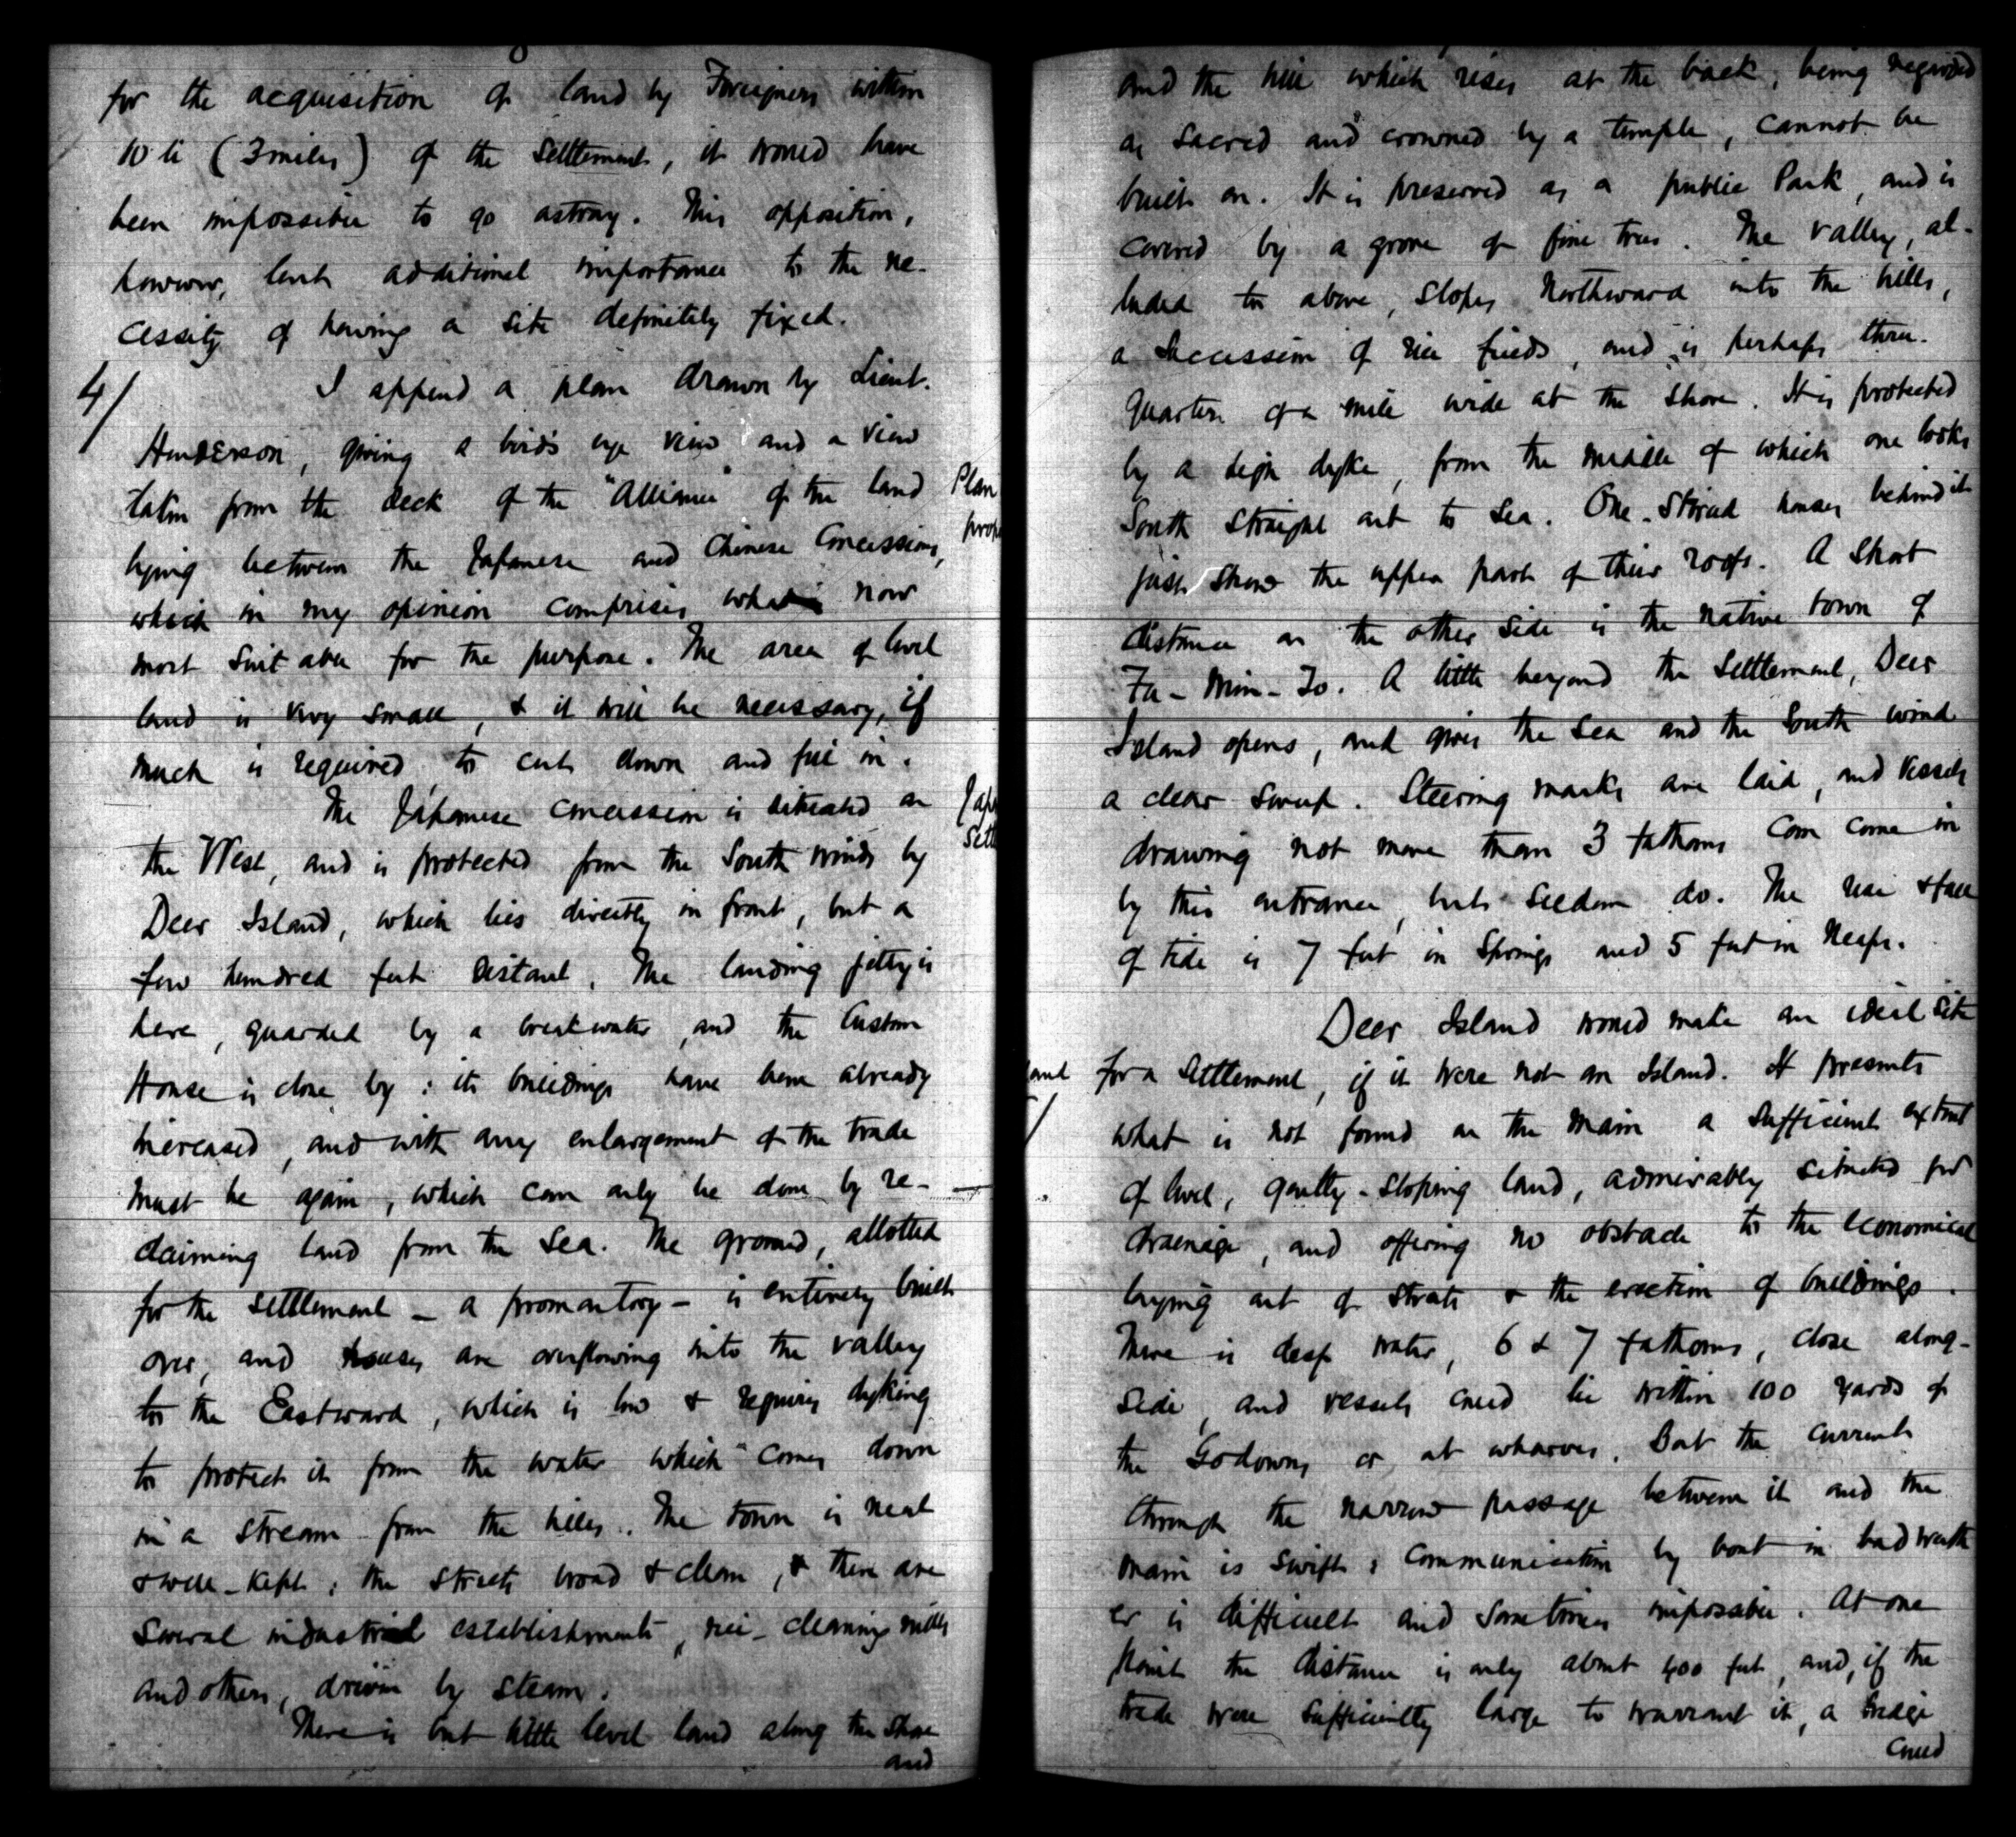 for the acquisition of land by Foreigners within
10 li (3 miles) of the Settlement, it would have
been impossible to go astray. This opposition,
however, lent additional importance to the ne-
cessity of having a site definitely fixed.
4/
I append a plan drawn by Lieut.
Henderson, giving a bird's eye view and a view
taken from the deck of the "Alliance" of the land
Plan
prop
lying between the Japanese and Chinese Concessions,
which in my opinion comprises what is now
most suitable for the purpose. The area of level
land is very small, & it will be necessary, if
much is required, to cut down and fill in.
The Japanese Concession is situated on
Jap
Sett
the West, and is protected from the South winds by
Deer Island, which lies directly in front, but a
few hundred feet distant. The landing jetty is
here, guarded by a breakwater, and the Custom
House is close by: its buildings have been already
increased, and with any enlargement of the trade
must be again, which can only be done by re-
claiming land from the Sea. The ground, allotted
for the Settlement – a promontory – is entirely built
over, and houses are overflowing into the valley
to the Eastward, which is low & requires dyking
to protect it from the water which comes down
in a stream from the hills. The town is neat
& well-kept; the streets broad & clean, & there are
several industrial establishments, rice-cleaning mills
and others, driven by steam.
There is but little level land along the Shore
and
and the hill which rises at the back, being regarded
as sacred and crowned by a temple, cannot be
built on. It is preserved as a public Park, and is
covered by a grove of fine trees. The valley, al-
luded to above, slopes Northward into the hills,
a succession of rice fields, and is perhaps three-
quarters of a mile wide at the shore. It is protected
by a high dyke, from the middle of which one looks
South straight out to Sea. One-storied houses behind it
just show the upper part of their roofs. A short
distance on the other side is the native town of
Fu-Min-To. A little beyond the Settlement, Deer
Island opens, and gives the Sea and the South wind
a clear sweep. Steering marks are laid, and vessels
drawing not more than 3 fathoms can come in
by this entrance, but seldom do. The rise & fall
of tide is 7 feet in Springs and 5 feet in Neaps.
Deer Island would make an ideal site
land
for a Settlement, if it were not an Island. It presents
/
what is not found on the Main a sufficient extent
of level, gently-sloping land, admirably situated for
drainage, and offering no obstacle to the economical
laying out of Streets & the erection of buildings.
There is deep water, 6 & 7 fathoms, close along-
side, and vessels could lie within 100 yards of
the Godowns or at wharves. But the current
through the narrow passage between it and the
main is swift; communication by boat in bad weath
er is difficult and sometimes impossible. At one
point the distance is only about 400 feet, and, if the
trade were sufficiently large to warrant it, a bridge
could